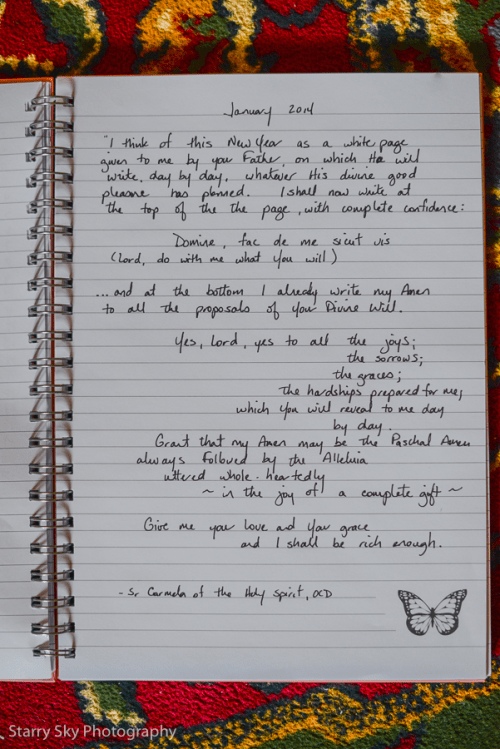 January 2014
"I think of this New Year as a white page
given to me by your Father, on which He will
write, day by day, whatever His divine good
pleasure has planned. I shall now write at
the top of the the page, with complete confidence:
Domine, fac de me sicut vis
(Lord, do with me what You will)
...and at the bottom I already write my Amen
to all the proposals of your Divine Will.
Yes, Lord, yes to all the joys;
the sorrows;
the graces;
the hardships prepared for me,
which You will reveal to me day
by day.
Grant that my Amen may be the Paschal Amen
always followed by the Alleluia
uttered whole-heartedly
~ in the joy of a complete gift ~
Give me your love and Your grace
and I shall be rich enough.
- Sr Carmela of the Holy Spirit, OCD
Starry Sky Photography